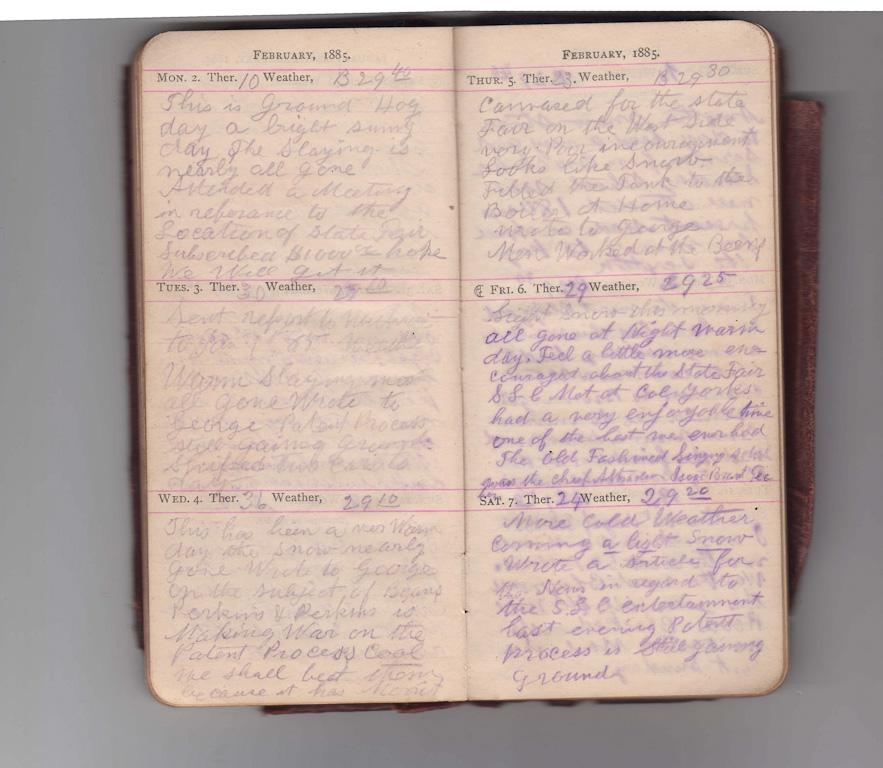 FEBRUARY, 1885.
MON. 2. Ther. 10 Weather, B 29 40
This is Ground Hog
day a bright sunny
day The Slaying is
nearly all gone
Attended a Meeting
in referance to the
Location of State Fair
Subscribed $1000 hope
we will get it
TUES. 3. Ther. 30 Weather,
Sent report to
Warm Slaying
all gone Wrote to
George Patent Process
still gaining
WED. 4. Ther. 36 Weather, 29 10
This has been a Warm
day the snow nearly
gone Wrote to George
on the subject of
Perkins & Perkins is
Making War on the
Patent Process Coal
we shall beat them
because it has Merit
FEBRUARY, 1885.
THUR. 5. Ther. Weather, B 29 30
Canvased for the state
Fair on the West Side
very Poor incouragment
Looks like Snow
Filled the Tank to the
Boiler at Home
wrote to George
Men Worked at the
FRI. 6. Ther. 29 Weather, 29 25
Light snow this morning
all gone at Night warm
day. Feel a little more en-
couraged about the State Fair
S S C Met at Col
had a very enjoyable time
one of the best we ever had
The Old Fashioned Singing school
was the chief Attraction
SAT. 7. Ther. 24 Weather, 29 20
More Cold Weather
Coming a light Snow
Wrote a article for
the News in regard to
the S.S.C entertainment
last evening Patent
process is still gaining
Ground